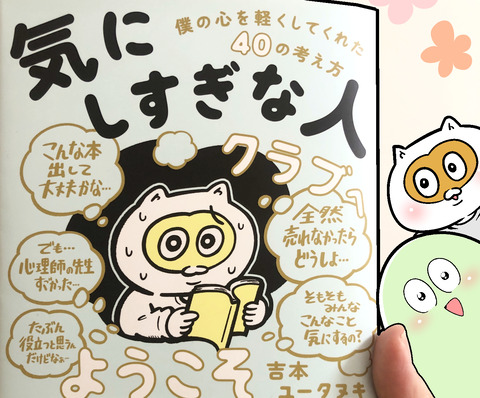 僕の心を軽くしてくれた
40の考え方
気に
しすぎな人
クラブへ
ようこそ
こんな本
出して
大丈夫かな…
でも…
心理師の先生
すごかった…
たぶん
役立つと思うん
だけどなぁ…
全然
売れなかったら
どうしよ…
そもそも
みんな
こんなこと
気にするの?
吉本
ユータヌキ